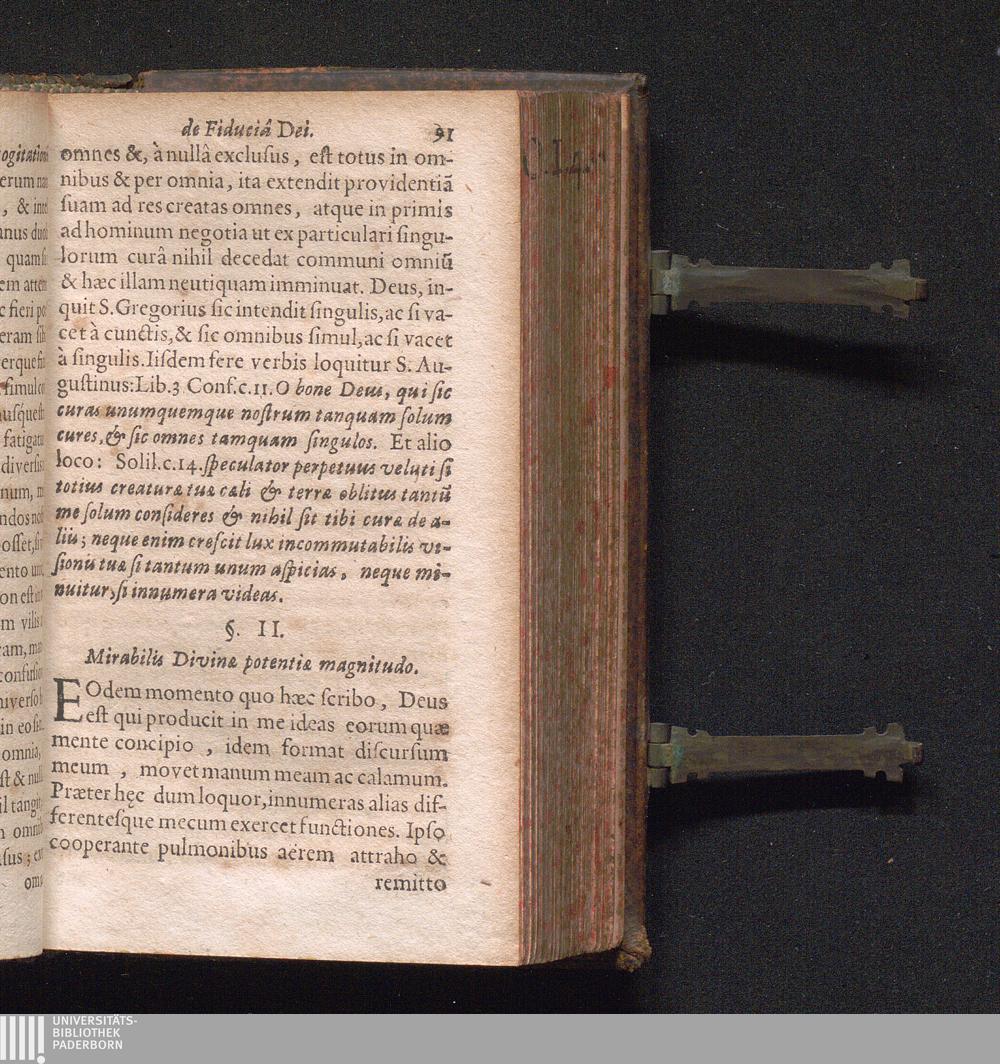 de Fiduciâ Dei. 91
omnes &, à nullâ exclusus, est totus in om-
nibus & per omnia, ita extendit providentiā
suam ad res creatas omnes, atque in primis
ad hominum negotia ut ex particulari singu-
lorum curâ nihil decedat communi omniū
& hæc illam neutiquam imminuat. Deus, in-
quit S. Gregorius sic intendit singulis, ac si va-
cet à cunctis, & sic omnibus simul, ac si vacet
à singulis. Iisdem fere verbis loquitur S. Au-
gustinus: Lib. 3 Conf. c. 11. O bone Deus, qui sic
curas unumquemque nostrum tanquam solum
cures, & sic omnes tamquam singulos. Et alio
loco: Solil. c. 14. speculator perpetuus veluti si
totius creaturæ tuæ cæli & terræ oblitus tantū
me solum consideres & nihil sit tibi curæ de a-
liis; neque enim crescit lux incommutabilis vi-
sionis tuæ si tantum unum aspicias, neque mi-
nuitur, si innumera videas.
§. II.
Mirabilis Divinæ potentiæ magnitudo.
EOdem momento quo hæc scribo, Deus
est qui producit in me ideas eorum quæ
mente concipio, idem format discursum
meum, movet manum meam ac calamum.
Præter hęc dum loquor, innumeras alias dif-
ferentesque mecum exercet functiones. Ipso
cooperante pulmonibus aërem attraho &
remitto
UNIVERSITÄTS-
BIBLIOTHEK
PADERBORN